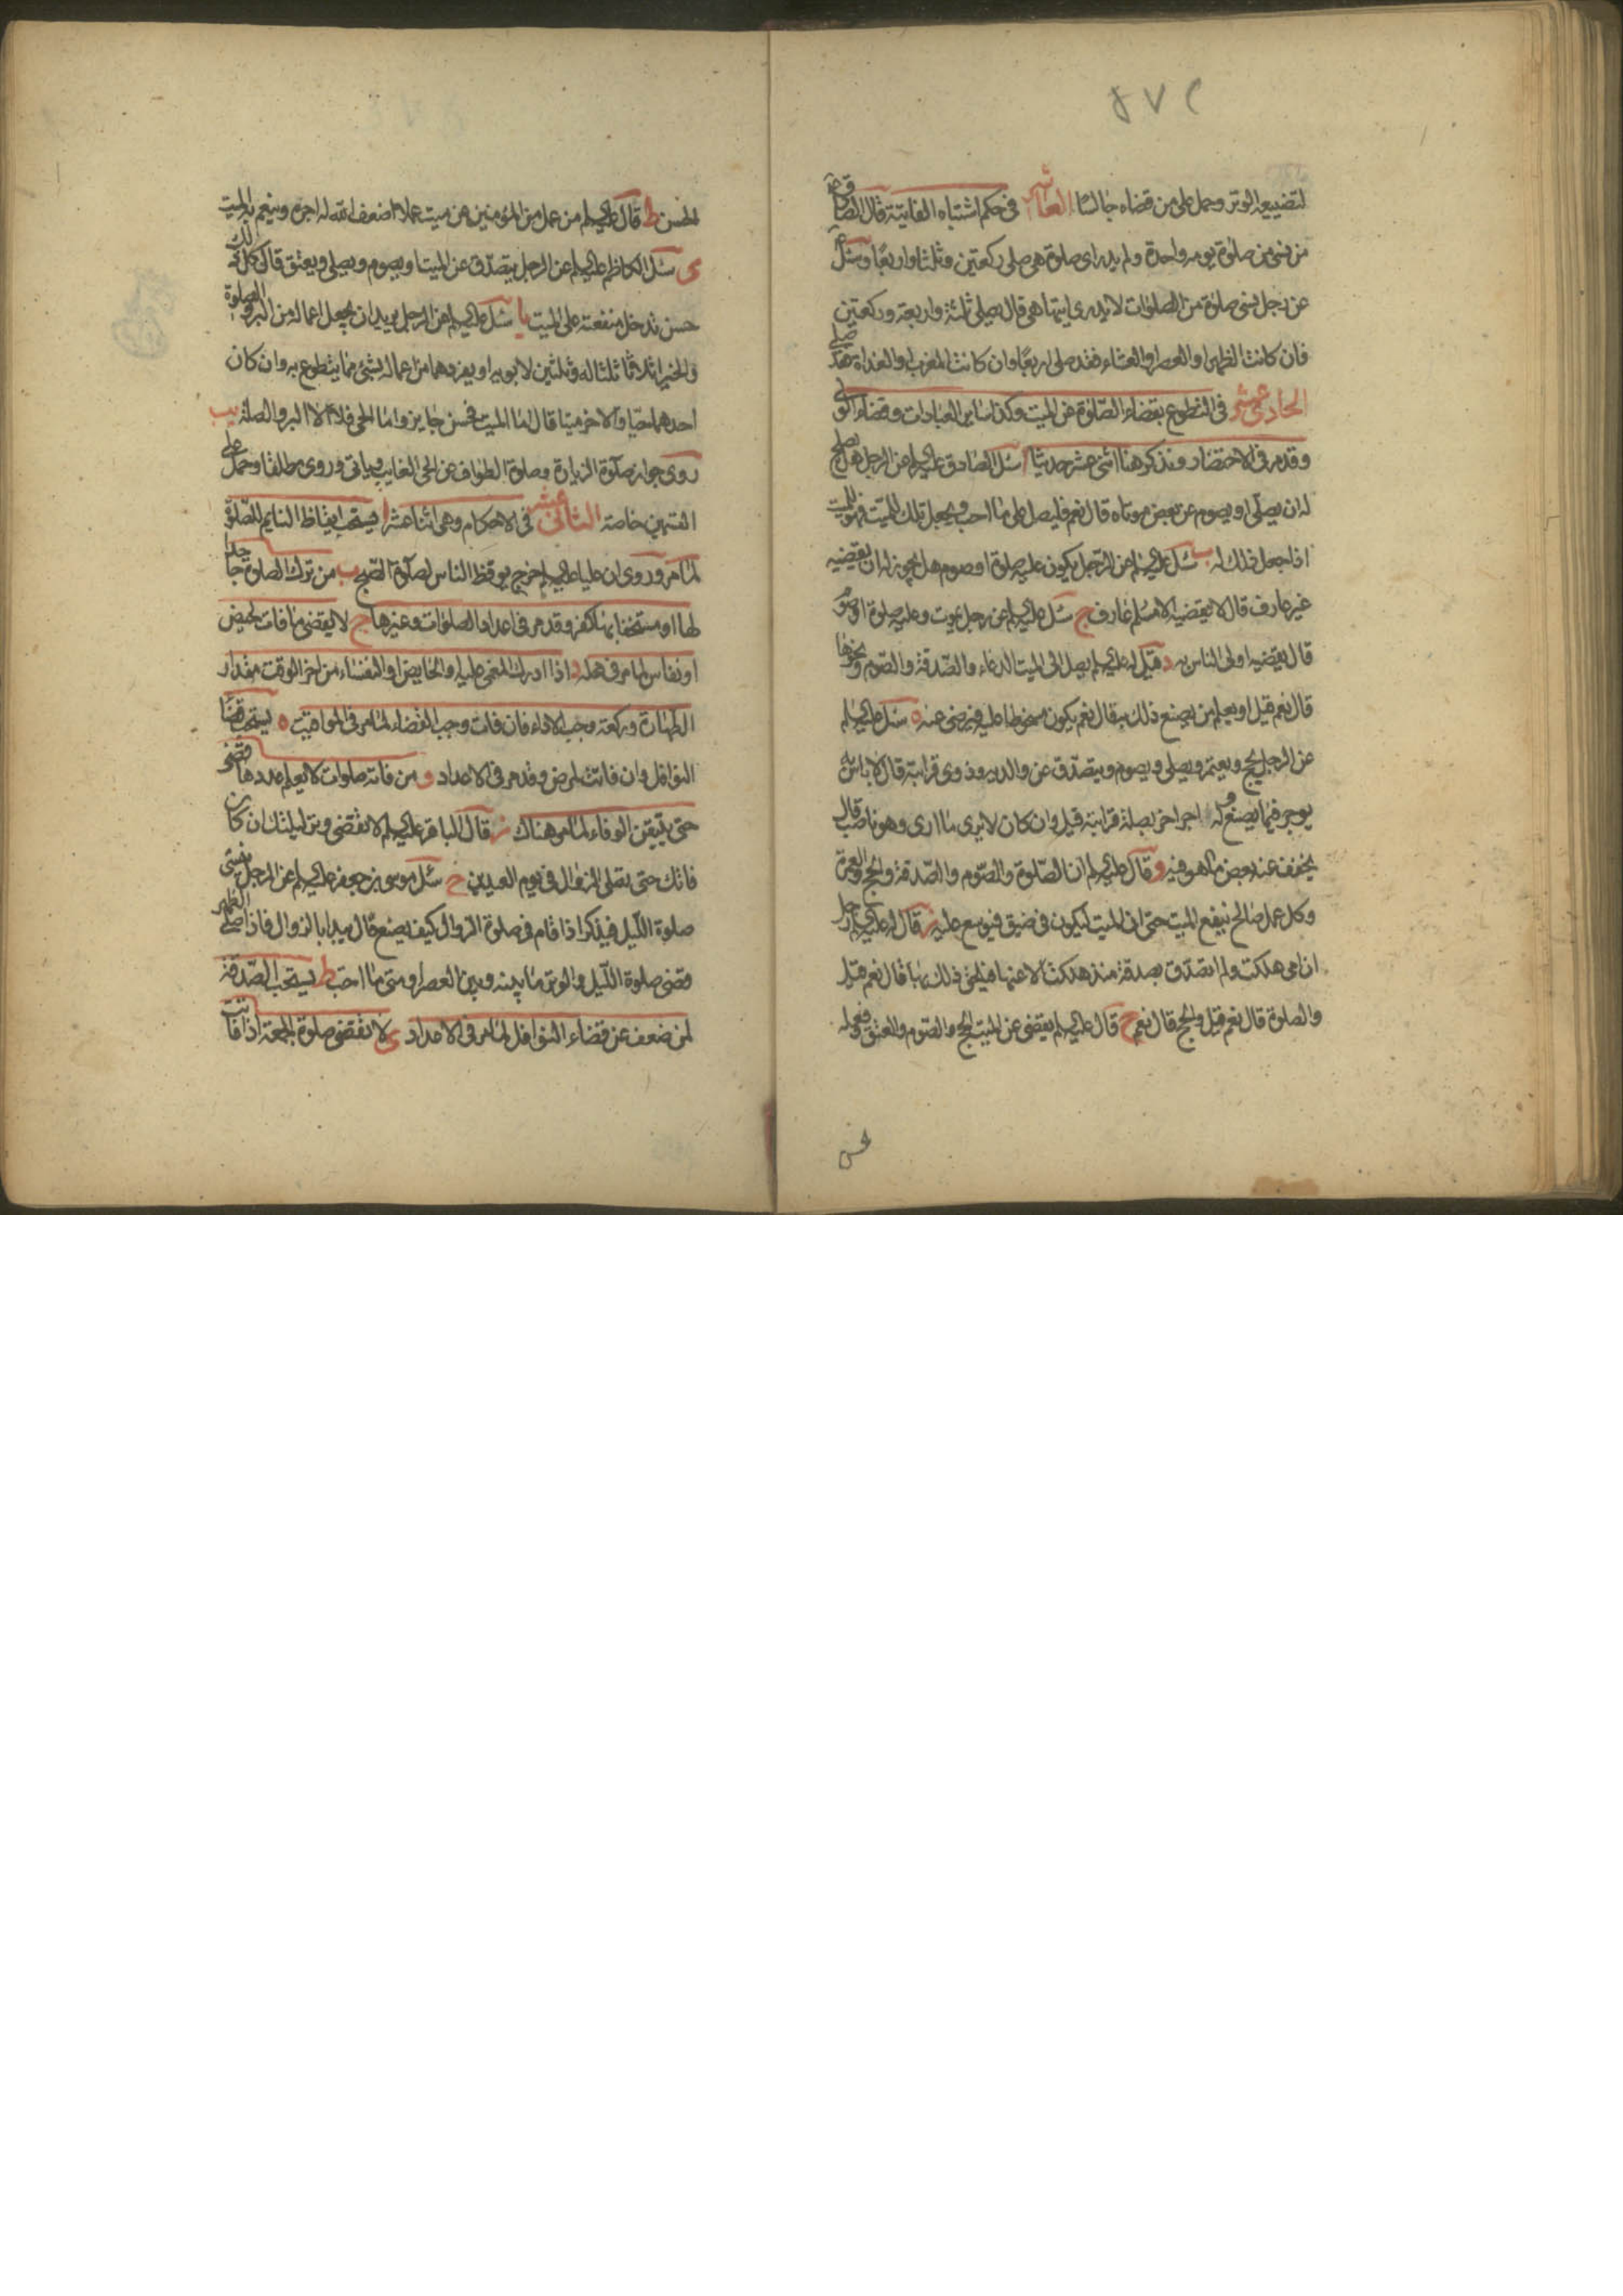 ٨٧٢
لتضييعه الوتر وحمل على من قضاه جالسا العاشر في حكم اشتباه الفايتة قال الصادق ع
من نسي من صلوة يومه واحدة ولم يدر اى صلوة هي صلى ركعتين وثلثا واربعا وسئل ع
عن رجل نسي صلوة من الصلوات لا يدرى ايتها هي قال يصلي ثلثة واربعة وركعتين
فان كانت الظهر او العصر او العشاء فقد صلى اربعا وان كانت المغرب او الغداة فقد صلى
الحادي عشر في التطوع بقضاء الصلوة عن الميت وكذا ساير العبادات وقضاء الولي
وقد مر في الاحتضار ونذكر هنا اثنى عشر حديثا ا سئل الصادق عليه السلم عن الرجل هل يصلح
له ان يصلي او يصوم عن بعض موتاه قال نعم فليصل على ما احب ويجعل تلك للميت فهو للميت
اذا جعل ذلك له ب سئل عليه السلم عن الرجل يكون عليه صلوة او صوم هل يجوز له ان يقضيه
غير عارف قال لا يقضيه الا مسلم عارف ج سئل عليه السلم عن رجل يموت وعليه صلوة او صوم
قال يقضيه اولى الناس به د قيل له عليه السلم يصل الى الميت الدعاء والصدقة والصوم ونحوها
قال نعم قيل او يعلم من يصنع ذلك به قال نعم يكون مسخوطا عليه فيرضى عنه ه سئل عليه السلم
عن الرجل يحج ويعتمر ويصلي ويصوم ويتصدق عن والديه وذوى قرابته قال لا باس به
يوجر فيما يصنع وله اجر اخر بصلة قرابته قيل وان كان لا يرى ما ارى وهو ناصب قال
يخفف عنه بعض ما هو فيه و قال عليه السلم ان الصلوة والصوم والصدقة والحج والعمرة
وكل عمل صالح ينفع الميت حتى ان الميت ليكون في ضيق فيوسع عليه ز قال له عليه السلم رجل
ان امي هلكت ولم اتصدق بصدقة منذ هلكت الا عنها فيلحق ذلك بها قال نعم قيل
والصلوة قال نعم قيل والحج قال نعم ح قال عليه السلم يقضى عن الميت الحج والصوم والعتق وفعله
الحسن
الحسن ط قال عليه السلم من عمل من المؤمنين عن ميت عملا اضعف الله له اجره وينعم به الميت
ى سئل الكاظم عليه السلم عن الرجل يتصدق عن الميت او يصوم ويصلي ويعتق قال كل ذلك
حسن تدخل منفعته على الميت يا سئل عليه السلم عن الرجل يريد ان يجعل اعماله من البر والصلوة
والخير اثلاثا ثلثا له وثلثين لابويه او يفردهما من اعماله بشئ مما يتطوع به وان كان
احدهما حيا والاخر ميتا قال اما الميت فحسن جايز واما الحي فلا الا البر والصلة يب
روى جواز صلوة الزيارة وصلوة الطواف عن الحي الغايب وياتى وروى مطلقا وحمل على
القسمين خاصة الثاني عشر في الاحكام وهي اثنا عشر ا يستحب ايقاظ النايم للصلوة
لما مر وروى ان عليا عليه السلم خرج يوقظ الناس لصلوة الصبح ب من ترك الصلوة جاحدا
لها او مستخفا بها كفر وقد مر في اعداد الصلوات وغيرها ج لا يقضى ما فات بحيض
او نفاس لما مر في محله د اذا ادرك المغمى عليه او الحايض او النفساء من اخر الوقت مقدار
الطهارة وركعة وجب الاداء فان فات وجب القضاء لما مر في المواقيت ه يستحب قضاء
النوافل وان فاتت لمرض وقد مر في الاعداد و من فاته صلوات لا يعلم عددها قضى
حتى يتيقن الوفاء لما مر هناك ز قال الباقر عليه السلم لا تقضى وتر ليلتك ان كان
فاتك حتى تصلي الزوال في يوم العيدين ح سئل موسى بن جعفر عليه السلم عن الرجل ينسى
صلوة الليل فيذكر اذا قام في صلوة الزوال كيف يصنع قال يبدا بالزوال فاذا صلى الظهر
قضى صلوة الليل والوتر ما بينه وبين العصر او متى ما احب ط يستحب الصدقة
لمن ضعف عن قضاء النوافل لما مر في الاعداد ى لا تقضى صلوة الجمعة اذا فاتت